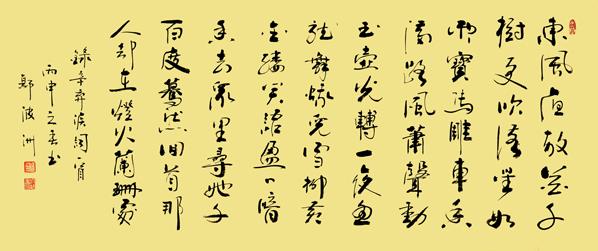 東風夜放花千
樹更吹落星如
雨寶馬雕車香
滿路風蕭聲動
玉壺光轉一夜魚
龍舞蛾兒雪柳黃
金縷笑語盈々暗
香去眾里尋她千
百度驀然回首那
人却在燈火蘭珊處
錄辛弃疾詞一首
丙申之春書
鄭波洲